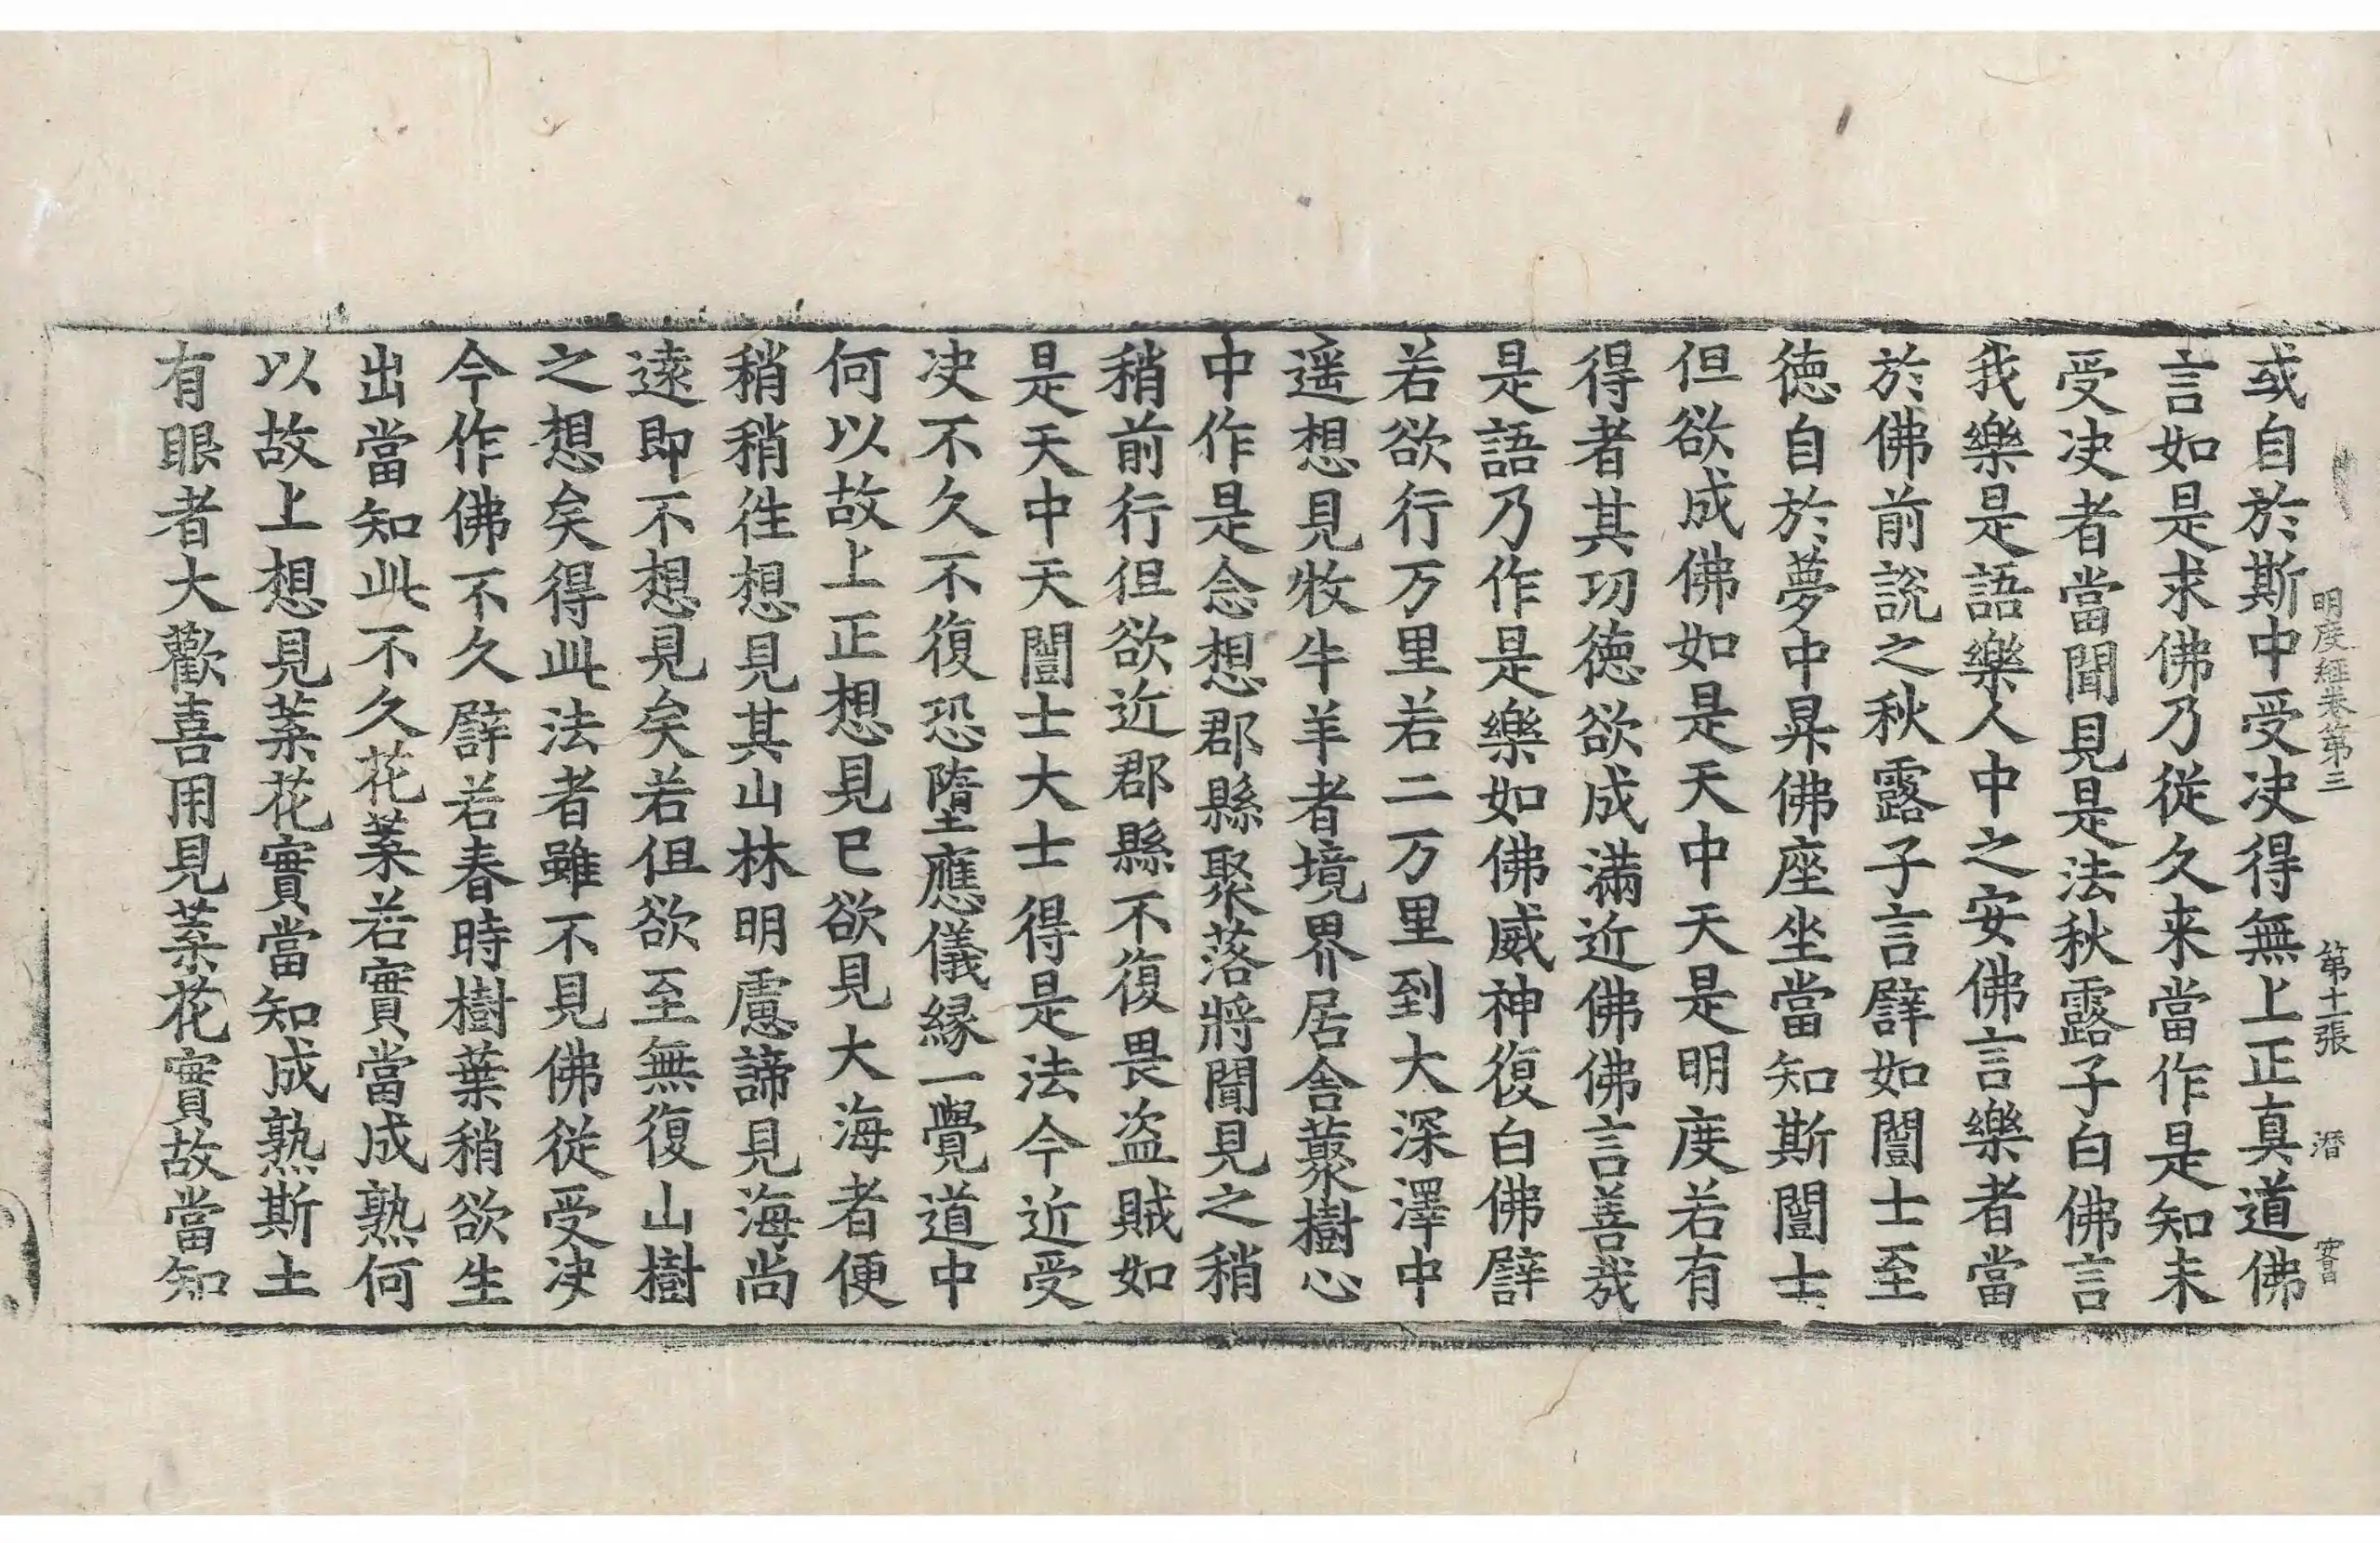 明度經卷第三　第十二張　潛
或自於斯中受决得無上正真道佛
言如是求佛乃從久来當作是知未
受决者當聞見是法秋露子白佛言
我樂是語樂人中之安佛言樂者當
於佛前說之秋露子言譬如闓士至
徳自於夢中昇佛座坐當知斯闓士
但欲成佛如是天中天是明度若有
得者其功徳欲成滿近佛佛言善哉
是語乃作是樂如佛威神復白佛譬
若欲行万里若二万里到大深澤中
遥想見牧牛羊者境界居舍藂樹心
中作是念想郡縣聚落將聞見之稍
稍前行但欲近郡縣不復畏盗賊如
是天中天闓士大士得是法今近受
决不久不復恐墮應儀縁一覺道中
何以故上正想見已欲見大海者便
稍稍徃想見其山林明慮諦見海尚
逺即不想見矣若但欲至無復山樹
之想矣得此法者雖不見佛從受决
今作佛不久譬若春時樹葉稍欲生
出當知此不久花葉若實當成熟何
以故上想見葉花實當知成熟斯土
有眼者大歡喜用見葉花實故當知